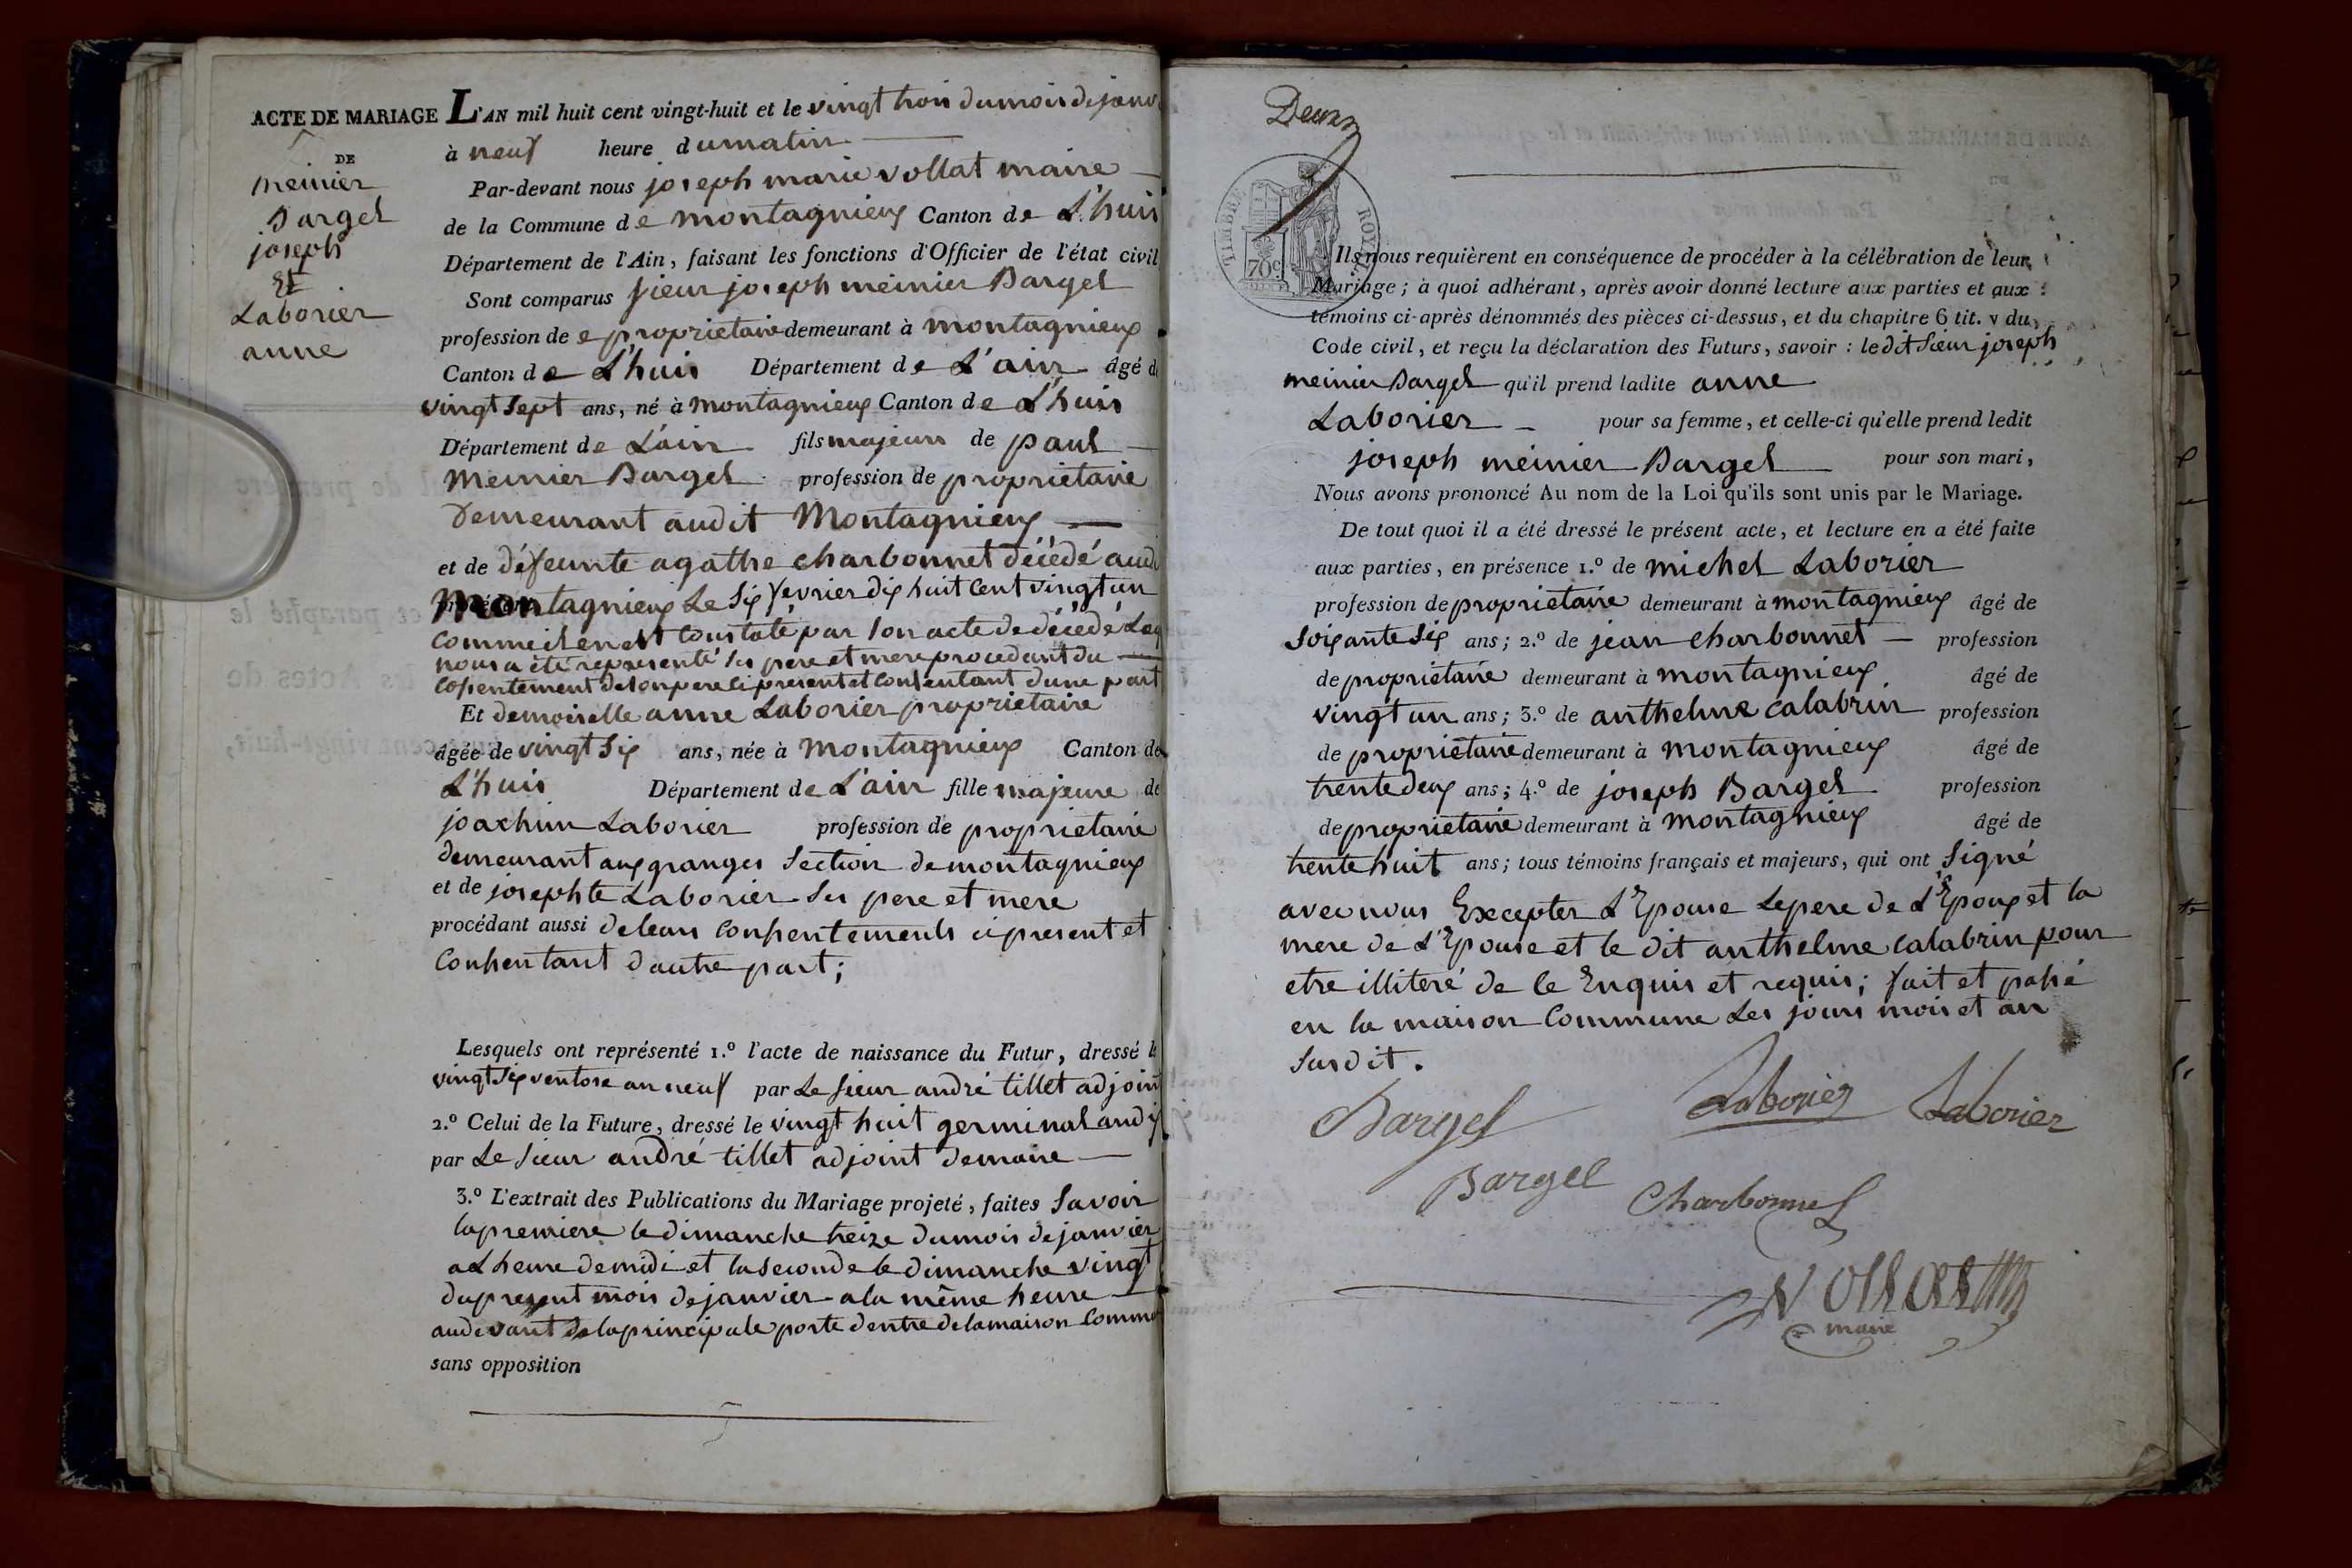 ACTE DE MARIAGE
DE
meinier
Bargel
joseph
Et
Laborier
anne
L'AN mil huit cent vingt-huit et le vingt trois du mois de janv
à neuf heure du matin
Par-devant nous joseph marie vollat maire
de la Commune de montagnieux Canton de L'huis
Département de l'Ain, faisant les fonctions d'Officier de l'état civil
Sont comparus sieur joseph meinier Bargel
profession de propriétaire demeurant à montagnieux
Canton de L'huis Département de L'ain âgé d
vingt sept ans, né à montagnieux Canton de L'huis
Département de L'ain fils majeur de paul
meinier Bargel profession de propriétaire
demeurant audit Montagnieux
et de défeunte agathe charbonnet décédé audi
Montagnieux Le six fevrier dix huit cent vingt un
comme il en est constaté par son acte de décedé Leq
nous a été représenté ses pere et mere procedant du
consentement de son pere ci présent et consentant d'une part
Et demoiselle anne Laborier propriétaire
âgée de vingt six ans, née à Montagnieux Canton de
L'huis Département de L'ain fille majeure de
joachim Laborier profession de propriétaire
demeurant aux granges section de montagnieux
et de josephte Laborier ses pere et mere
procédant aussi de leurs consentements ci present et
consentant d'autre part;
Lesquels ont représenté 1.º l'acte de naissance du Futur, dressé le
vingt six ventose an neuf par Le sieur andré tillet adjoint
2.º Celui de la Future, dressé le vingt huit germinal an dix
par Le sieur andré tillet adjoint de maire
3.º L'extrait des Publications du Mariage projeté, faites savoir
la premiere le dimanche treize du mois de janvier
a L heure de midi et la seconde le dimanche vingt
du present mois de janvier a la même heure
au devant de la principale porte d'entre de la maison Commu
sans opposition
Deux
TIMBRE ROYAL
70c
Ils nous requièrent en conséquence de procéder à la célébration de leur
Mariage; à quoi adhérant, après avoir donné lecture aux parties et aux
témoins ci-après dénommés des pièces ci-dessus, et du chapitre 6 tit. v du
Code civil, et reçu la déclaration des Futurs, savoir : le dit sieur joseph
meinier Bargel qu'il prend ladite anne
Laborier pour sa femme, et celle-ci qu'elle prend ledit
joseph meinier Bargel pour son mari,
Nous avons prononcé Au nom de la Loi qu'ils sont unis par le Mariage.
De tout quoi il a été dressé le présent acte, et lecture en a été faite
aux parties, en présence 1.º de michel Laborier
profession de propriétaire demeurant à montagnieux âgé de
soixante six ans; 2.º de jean charbonnet profession
de propriétaire demeurant à montagnieux âgé de
vingt un ans; 3.º de anthelme calabrin profession
de propriétaire demeurant à montagnieux âgé de
trente deux ans; 4.º de joseph Bargel profession
de propriétaire demeurant à montagnieux âgé de
trente huit ans; tous témoins français et majeurs, qui ont signé
avec nous Excepter L'Epouse Le pere de L'Epoux et la
mere de L'Epouse et le dit anthelme calabrin pour
etre illiteré de ce Enquis et requis; fait et passé
en la maison Commune Les jours mois et an
susdit.
Bargel Laborier Laborier
Bargel Charbonnel
Vollat
maire